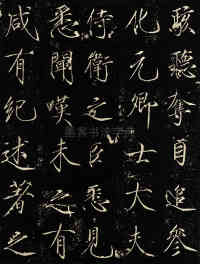 駭聽奪目追參
化元卿士大夫
侍衛之臣悉見
悉聞嘆未之有
咸有紀述著之